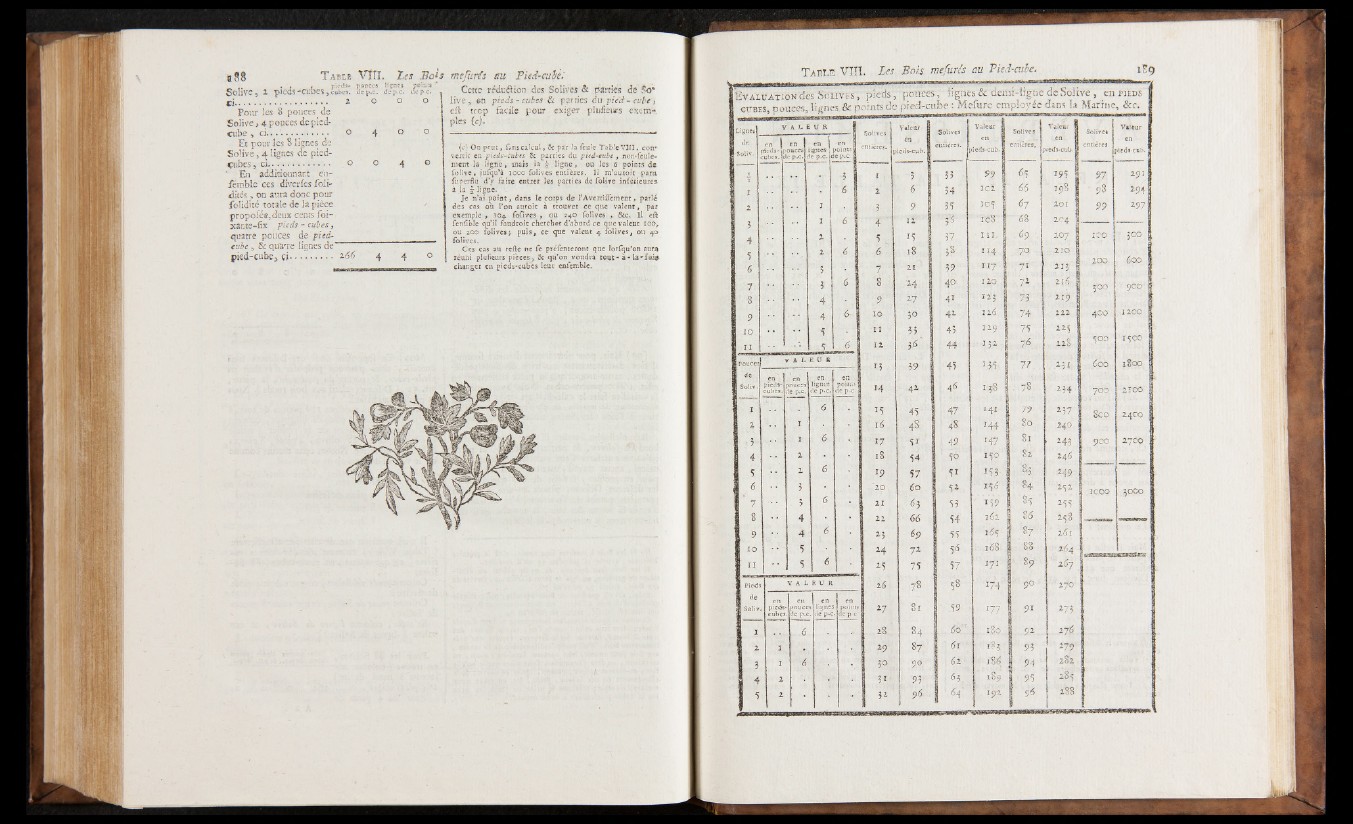 188 TABLE VIII. Les Bois mesurés au Pied-cube.
Solive, 2 pieds-cubes, pieds-cubes. pouces de p.c. lignes de p.c. points de p.c.
ci.................. 2 0 0 0
Pour les 8 pouces de
Solive, 4 pouces de pied-
cube, ci............ 0 4 0 0
Et pour les 8 lignes de
Solive, 4 lignes de pied-
cubes, ci............ 0 0 4 0
En additionnant en-
semble ces diverses soli-
dités, on aura donc pour
solidité totale de la pièce
proposée, deux cents soi-
xante-six pieds-cubes,
quatre pouces de pied-
cube, & quatre lignes de
pied-cube, ci......... 266 4 4 0
Cette réduction des Solives & parties de So-
live, en pieds-cubes & parties du pied-cube,
est trop facile pour exiger plusieurs exem-
ples (c).
(c) On peut, sans calcul, & par la seule Table VIII, con-
vertir en pieds-cubes & parties du pied-cube, non-seule-
ment la ligne, mais la ½ ligne, ou les 6 points de
solive, jusqu'à 1000 solives entières. Il m'auroit paru
superflu d'y faire entrer les parties de solive inférieures
à la ½ ligne.
Je n'ai point, dans le corps de l'Avertissement, parlé
des cas où l'on auroit à trouver ce que valent, par
exemple, 104 solives, ou 240 solives, &c. Il est
sensible qu'il faudroit chercher d'abord ce que valent 100,
ou 200 solives; puis, ce que valent 4 solives, ou 40
solives.
Ces cas au reste ne se présenteront que lorsqu'on aura
réuni plusieurs pièces, & qu'on voudra tout-à-la-fois
changer en pieds-cubes leur ensemble.
TABLE VIII. Les Bois mesurés au Pied-cube. 189
EVALUATION des SOLIVES, pieds, pouces, lignes & demi-ligne de Solive, en PIEDS
CUBES, pouces, lignes & points de pied-cube: Mesure employée dans la Marine, &c.
Lignes de Soliv. VALEUR en pieds-cubes. en pouces de p.c. en lignes de p.c. en points de p.c.
½ .. .. . 3
1 .. .. . 6
2 .. .. 1 .
3 .. .. 1 6
4 .. .. 2 .
5 .. .. 2 6
6 .. .. 3 .
7 .. .. 3 6
8 .. .. 4 .
9 .. .. 4 6
10 .. .. 5 .
11 .. .. 5 6
Pouces de Soliv. VALEUR en pieds-cubes. en pouces de p.c. en lignes de p.c. en points de p.c.
1 .. . 6 .
2 .. 1 . .
3 .. 1 6 .
4 .. 2 . .
5 .. 2 6 .
6 .. 3 . .
7 .. 3 6 .
8 .. 4 . .
9 .. 4 6 .
10 .. 5 . .
11 .. 5 6 .
Pieds de Soliv. VALEUR en pieds-cubes. en pouces de p.c. en lignes de p.c. en points de p.c.
1 .. 6 . .
2 1 . . .
3 1 6 . .
4 2 . . .
5 2 . . .
Solives entières. Valeur en pieds-cub. Solives entières. Valeur en pieds-cub. Solives entières. Valeur en pieds-cub. Solives entières Valeur en pieds-cub.
1 3 33 99 65 195 97 291
2 6 34 102 66 198 98 294
3 9 35 105 67 201 99 297
4 12 36 108 68 204
5 15 37 111 69 207 100 300
6 18 38 114 70 210
7 21 39 117 71 213 200 600
8 24 40 120 72 216 300 900
9 27 41 123 73 219
10 30 42 126 74 222 400 1200
11 33 43 129 75 225
12 36 44 132 76 228 500 1500
13 39 45 135 77 231 600 1800
14 42 46 138 78 234 700 2100
15 45 47 141 79 237 800 2400
16 48 48 144 80 240
17 51 49 147 81 243 900 2700
18 54 50 150 82 246
19 57 51 153 83 249
20 60 52 156 84 252 1000 3000
21 63 53 159 85 255
22 66 54 162 86 258
23 69 55 165 87 261
24 72 56 168 88 264
25 75 57 171 89 267
26 78 58 174 90 270
27 81 59 177 91 273
28 84 60 180 92 276
29 87 61 183 93 279
30 90 62 186 94 282
31 93 63 189 95 285
32 96 64 192 96 288